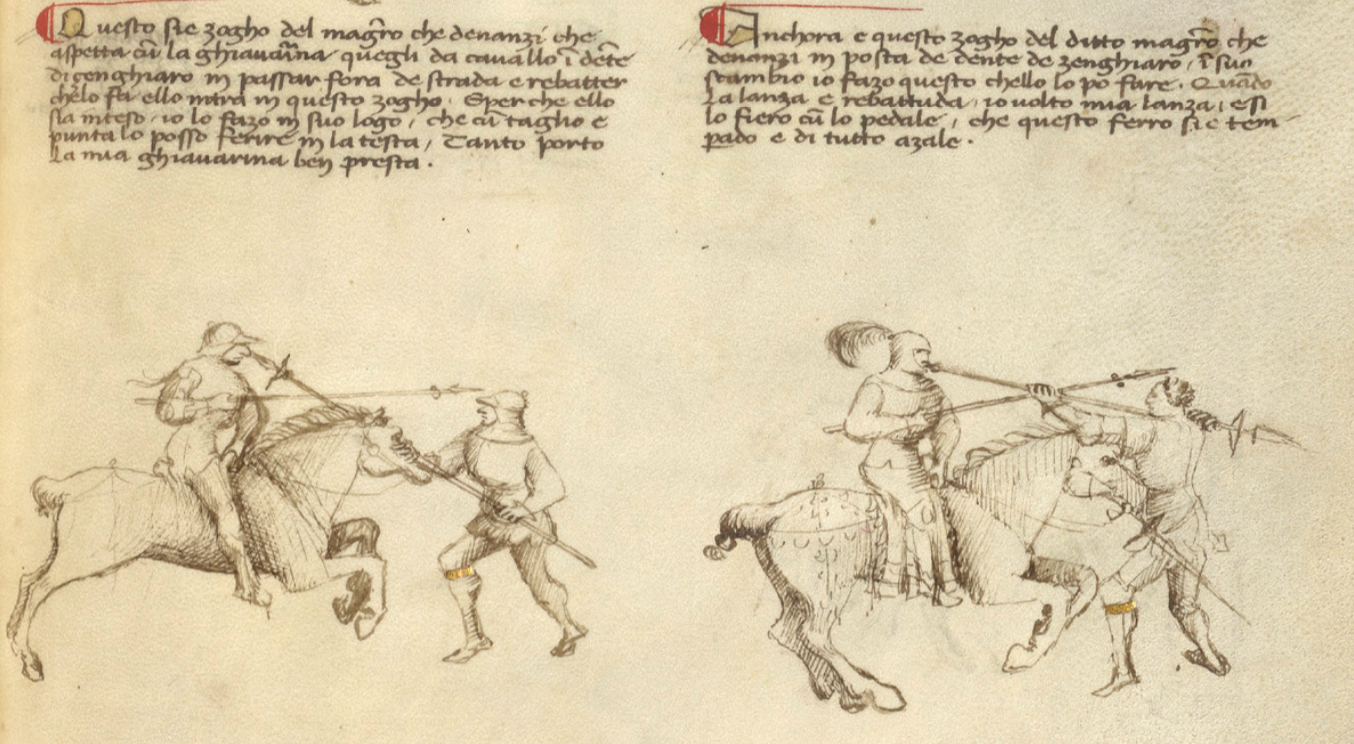 Questo sie zogho del magr̄o che denanzi che
aspetta cū la ghiavarīna quegli da cavallo ī dēte
di cenghiaro in passar fora de strada e rebatter
chelo fa ello intra in questo zogho. E perche ello
sia inteso, io lo fazo in suo logo, che cū taglio e
punta lo posso ferire in la testa, Tanto porto
La mia ghiavarina ben presta.
Anchora e questo zogho del ditto magr̄o che
denanzi in posta de dente de zenghiaro, ī suo
scambio io fazo questo chello lo po fare. Quādo
La lanza e rebattuda, io volto mia lanza, e si
lo fiero cū lo pedale, che questo ferro sie tem-
perado e di tutto azale.